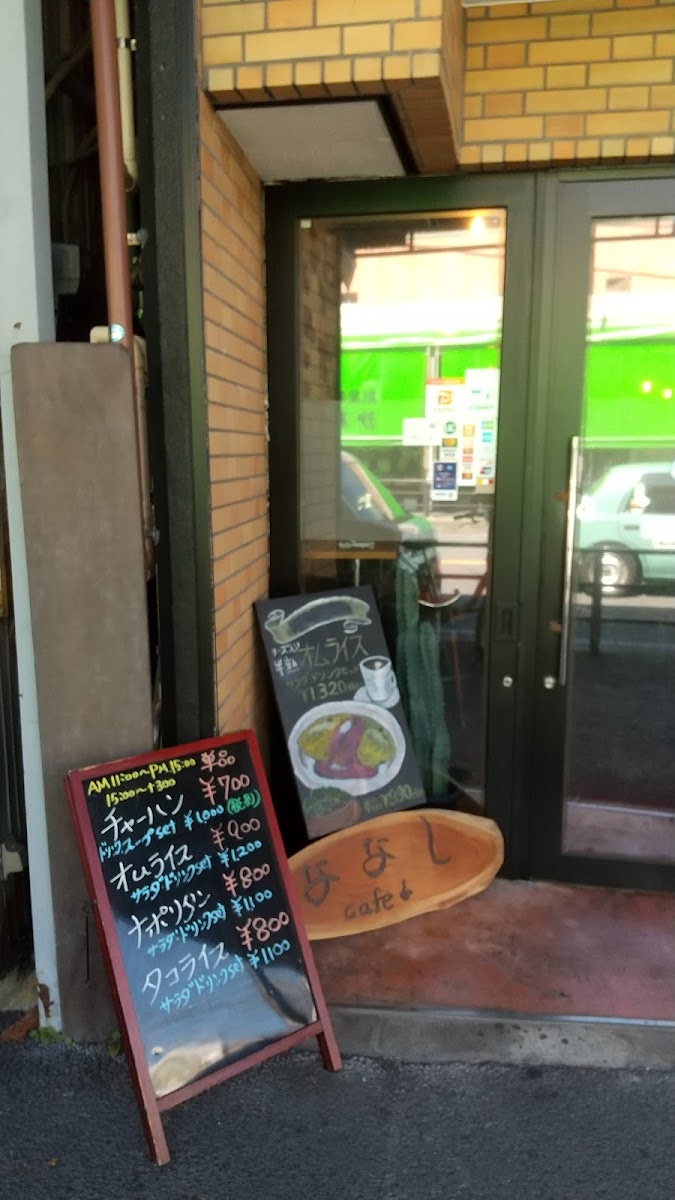 AM11:00~PM.15:00 単品
15:00~+300
チャーハン ¥700
ドリンクスープset ¥1,000 (税別)
オムライス ¥900
サラダドリンクset ¥1,200
ナポリタン ¥800
サラダドリンクset ¥1100
タコライス ¥800
サラダドリンクset ¥1100
半熟オムライス
サラダドリンクセット
¥1320
ななし
cafe